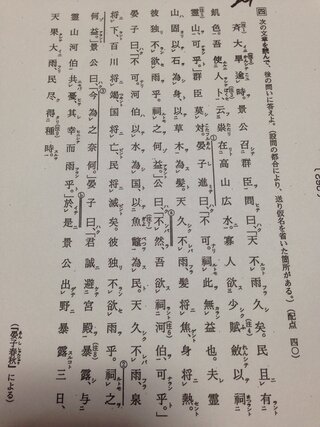 四 次の文章を読んで、後の問いに答えよ。(設問の都合により、送り仮名を省いた箇所がある。) (配点 四〇)
斉大旱逾時。景公召群臣問曰「天不雨久矣。民且有
飢色。吾使人卜云、祟在高山広水。寡人欲少賦斂以祠
霊山。可乎。」群臣莫対。晏子進曰「不可。祠此無益也。夫霊
山固以石為身、以草木為髪。天久不雨、髪将焦、身将熱。
彼独不欲雨乎。祠之何益。」公曰「不然、吾欲祠河伯、可乎。」
晏子曰「不可。河伯以水為国、以魚鼈為民。天久不雨、泉
将下、百川将竭、国将亡、民将滅矣。彼独不欲雨乎。祠之
何益。」景公曰「今為之奈何。」晏子曰「君誠避宮殿暴露、与
霊山河伯共憂、其幸而雨乎。」於是景公出野暴露三日、
天果大雨、民尽得種時。
(『晏子春秋』による)